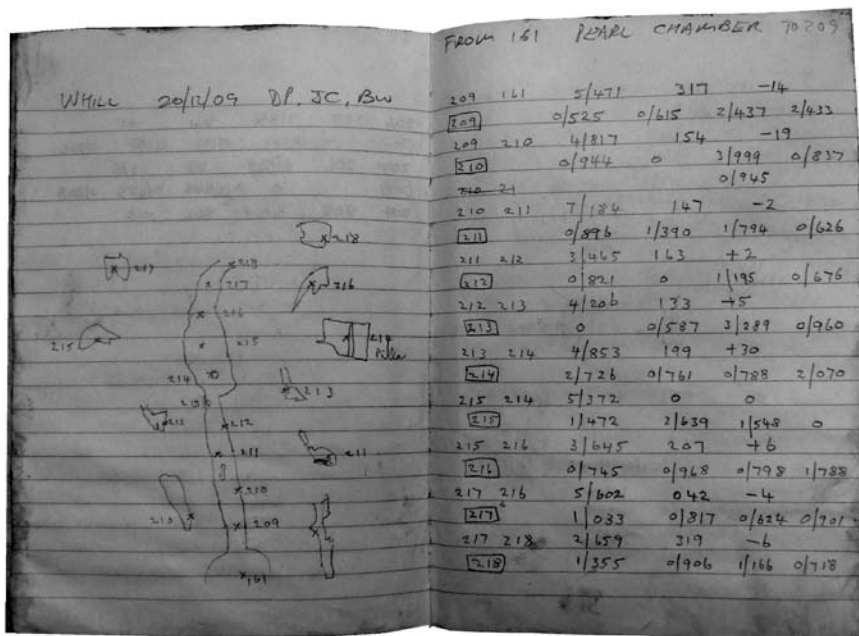 WHILL 20/12/09 DP, JC, BW
218
217
218
217
216
216
215
215
214
Pillar
214
213
213
212
212
211
211
210
210
209
161
FROM 161 PEARL CHAMBER TO 209
209 161 5/471 317 -14
209 0/525 0/615 2/437 2/433
209 210 4/817 154 -19
210 0/944 0 3/999 0/837
0/945
210 21
210 211 7/184 147 -2
211 0/896 1/390 1/794 0/626
211 212 3/465 163 +2
212 0/821 0 1/195 0/676
212 213 4/206 133 +5
213 0 0/587 3/289 0/960
213 214 4/853 199 +30
214 2/726 0/761 0/788 2/070
215 214 5/372 0 0
215 1/472 2/639 1/548 0
215 216 3/645 207 +6
216 0/745 0/968 0/798 1/788
217 216 5/602 042 -4
217 1/033 0/817 0/624 0/701
217 218 2/659 319 -6
218 1/355 0/906 1/166 0/718